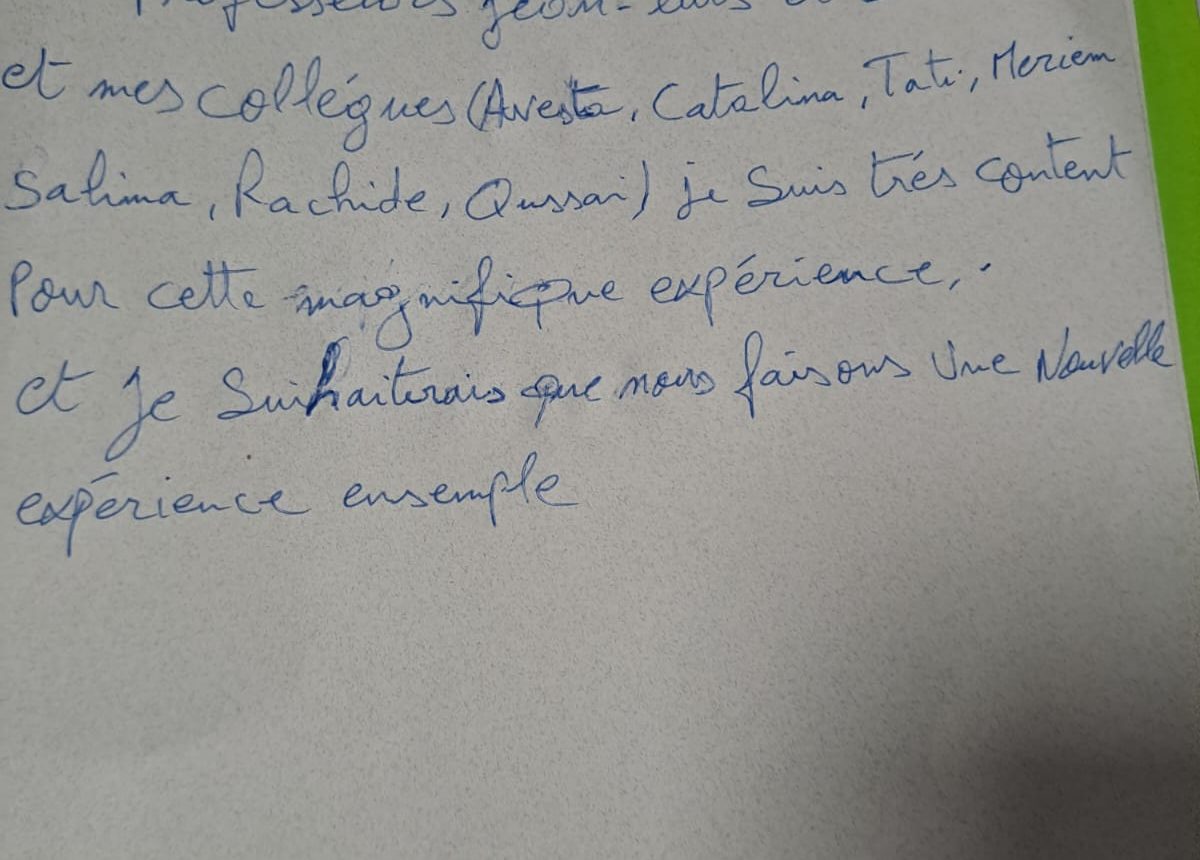 Professeurs jeon-luis
et mes collégues (Avesta, Catalina, Tati, Meriem
Salima, Rachide, Qussai) je suis trés content
Pour cette magnifique expérience,.
et je Suihaiterais que nous faisons Une Nouvelle
expérience ensemple